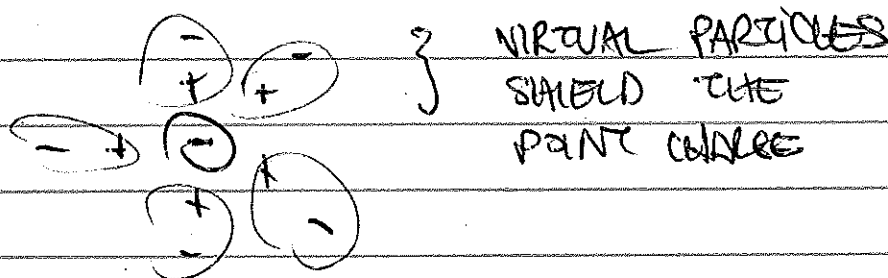 - - } VIRTUAL PARTICLES
+ + SHIELD THE
- + - POINT CHARGE
+ +
- -